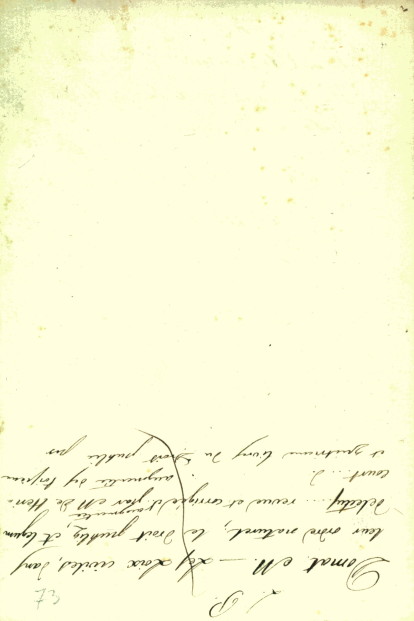 L. P.
73
Domat M. — Les Loix civiles, dans
leur ordre naturel; le Droit public, et legum
delectus... revue et corrigée & augmentée par M. de Heri-
court... augmentée du troisieme
et quatrieme livres du Droit public par